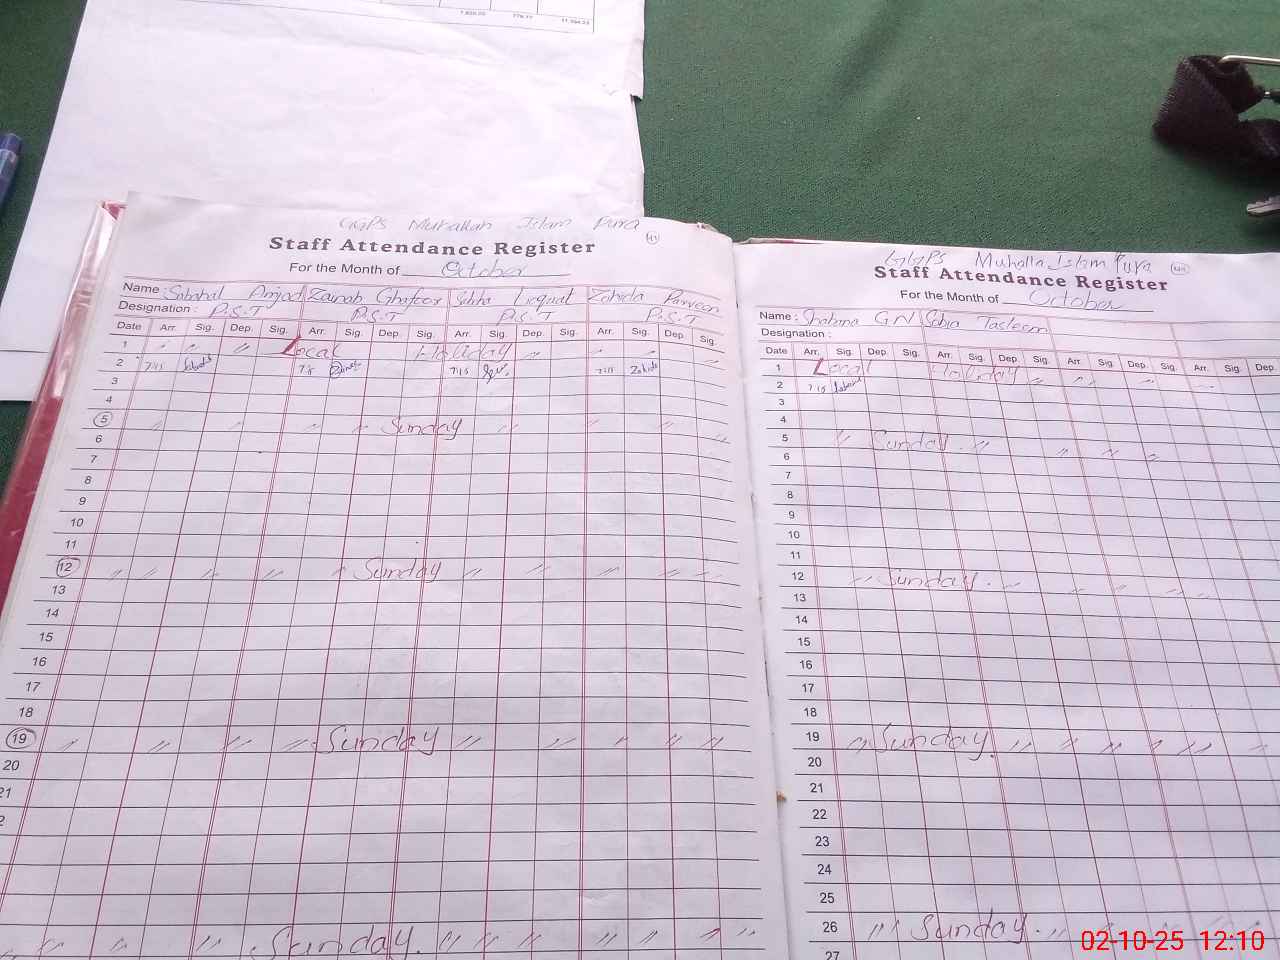 7,620.00 779.17 11,394.23
GGPS Muhallah Islam Pura
41
Staff Attendance Register
For the Month of October
Name : Sabahal Amjad Zainab Ghafoor Sidra Liaquat Zahida Parveen
Designation : P.S.T P.S.T P.S.T P.S.T
Date Arr. Sig. Dep. Sig. Arr. Sig. Dep. Sig. Arr. Sig. Dep. Sig. Arr. Sig. Dep. Sig.
1 " " " Local Holiday " " "
2 7:15 7:15 7:15 7:15 Zahida
3
4
5 " " " " Sunday " " " "
6
7
8
9
10
11
12 " " " " " Sunday " " " " "
13
14
15
16
17
18
19 " " " " Sunday " " " " "
20
21
2
" " " Sunday. " " " " " " "
GGPS Muhalla Islam Pura
Staff Attendance Register
For the Month of October
Name : Shabana G N Sobia Tasleem
Designation :
Date Arr. Sig. Dep. Sig. Arr. Sig. Dep. Sig. Arr. Sig. Dep. Sig. Arr. Sig. Dep.
1 Local Holiday " " " "
2 7:15
3
4
5 " Sunday. " " " "
6
7
8
9
10
11
12 " Sunday. " " " " "
13
14
15
16
17
18
19 " Sunday. " " " " " " "
20
21
22
23
24
25
26 " " Sunday. " " "
27
02-10-25 12:10